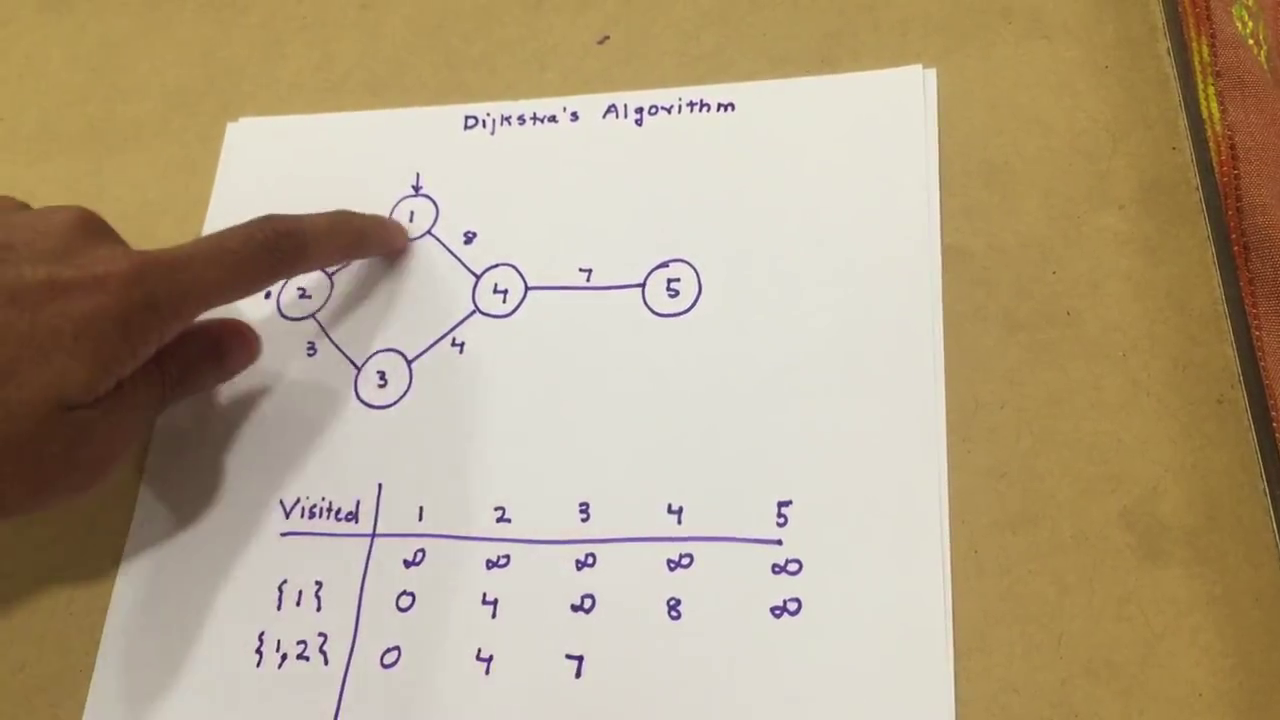 Dijkstra's Algorithm
1
8
2
4
7
5
3
4
3
Visited 1 2 3 4 5
∞ ∞ ∞ ∞ ∞
{1} 0 4 ∞ 8 ∞
{1,2} 0 4 7